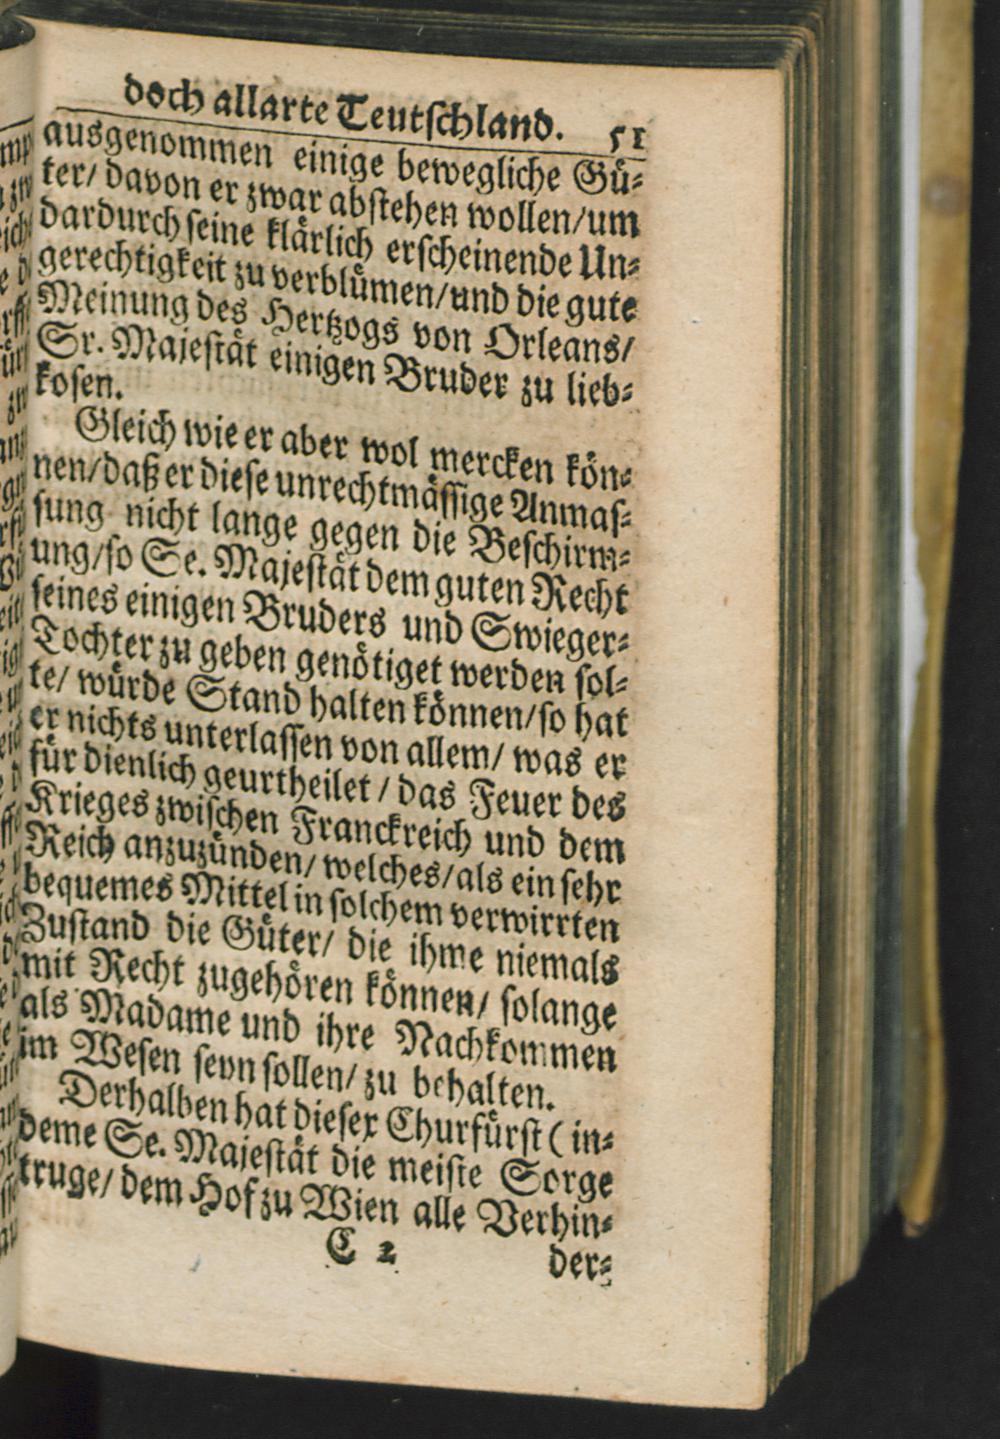 doch allarte Teutschland. 51
ausgenommen einige bewegliche Gü-
ter/ davon er zwar abstehen wollen/um
dardurch seine klärlich erscheinende Un-
gerechtigkeit zu verblümen/und die gute
Meinung des Hertzogs von Orleans/
Sr. Majestät einigen Bruder zu lieb-
kosen.
Gleich wie er aber wol mercken kön-
nen/daß er diese unrechtmässige Anmas-
sung nicht lange gegen die Beschirm-
ung/so Se. Majestät dem guten Recht
seines einigen Bruders und Swieger-
Tochter zu geben genötiget werden sol-
te/ würde Stand halten können/so hat
er nichts unterlassen von allem/ was er
für dienlich geurtheilet / das Feuer des
Krieges zwischen Franckreich und dem
Reich anzuzünden/ welches/als ein sehr
bequemes Mittel in solchem verwirrten
Zustand die Güter/ die ihme niemals
mit Recht zugehören können/ solange
als Madame und ihre Nachkommen
im Wesen seyn sollen/ zu behalten.
Derhalben hat dieser Churfürst ( in-
deme Se. Majestät die meiste Sorge
truge/ dem Hof zu Wien alle Verhin-
C 2 der-